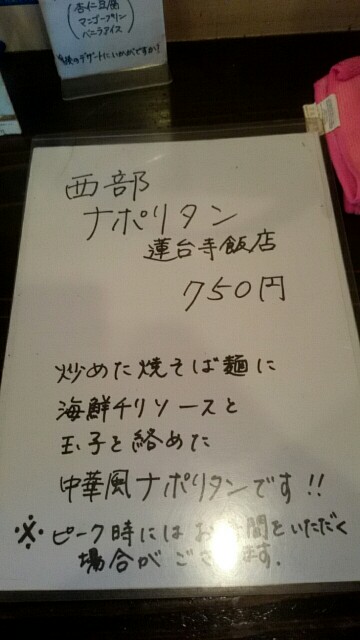 杏仁豆腐
マンゴープリン
バニラアイス
デザートにいかがですか!
西部
ナポリタン
蓮台寺飯店
750円
炒めた焼そば麺に
海鮮チリソースと
玉子と絡めた
中華風ナポリタンです!!
※ピーク時にはお時間をいただく
場合がございます.